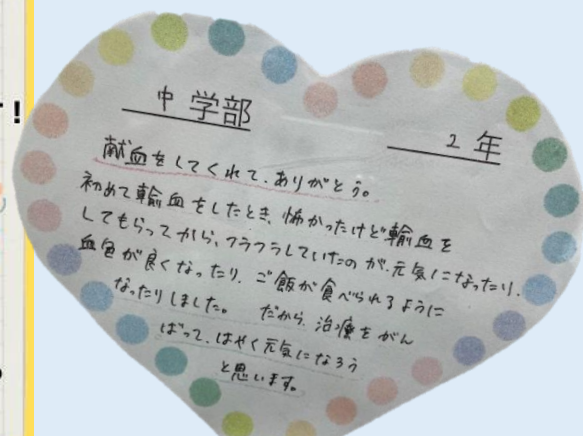 ！
中学部
2年
献血をしてくれて、ありがとう。
初めて輸血をしたとき、怖かったけど輸血を
してもらってから、フラフラしていたのが、元気になったり、
血色が良くなったり、ご飯が食べられるように
なったりしました。 だから、治療をがん
ばって、はやく元気になろう
と思います。